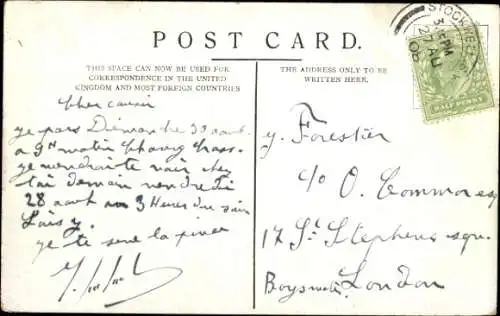 POST CARD.
THIS SPACE CAN NOW BE USED FOR
CORRESPONDENCE IN THE UNITED
KINGDOM AND MOST FOREIGN COUNTRIES
THE ADDRESS ONLY TO BE
WRITTEN HERE.
STOCKWELL
3 PM
AU
HALFPENNY
Cher cousin
je pars Dimanche 30 aout
a 9h matin
je viendrai te voir chez
toi demain vendredi
28 aout a 3 Heures du soir
je te serre la pince
y. Forestier
c/o O. Common esq
17 St Stephens squ.
Bayswater London